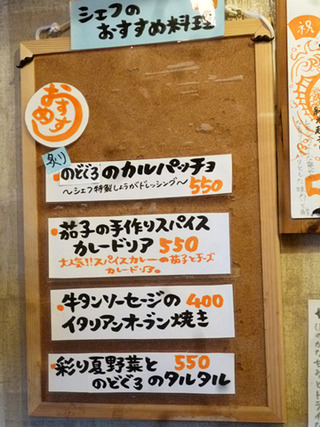 シェフの
おすすめ料理
おすすめ
炙り
のどぐろのカルパッチョ
〜シェフ特製しょうがドレッシング〜 550
茄子の手作りスパイス
カレードリア 550
大人気!!スパイスカレーの茄子とチーズ
カレードリア。
牛タンソーセージの 400
イタリアンオーブン焼き
彩り夏野菜と 550
のどぐろのタルタル
祝